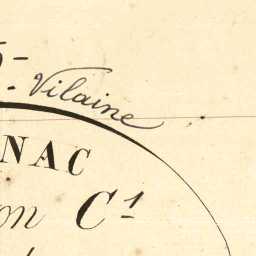 Vilaine
NAC
on C¹